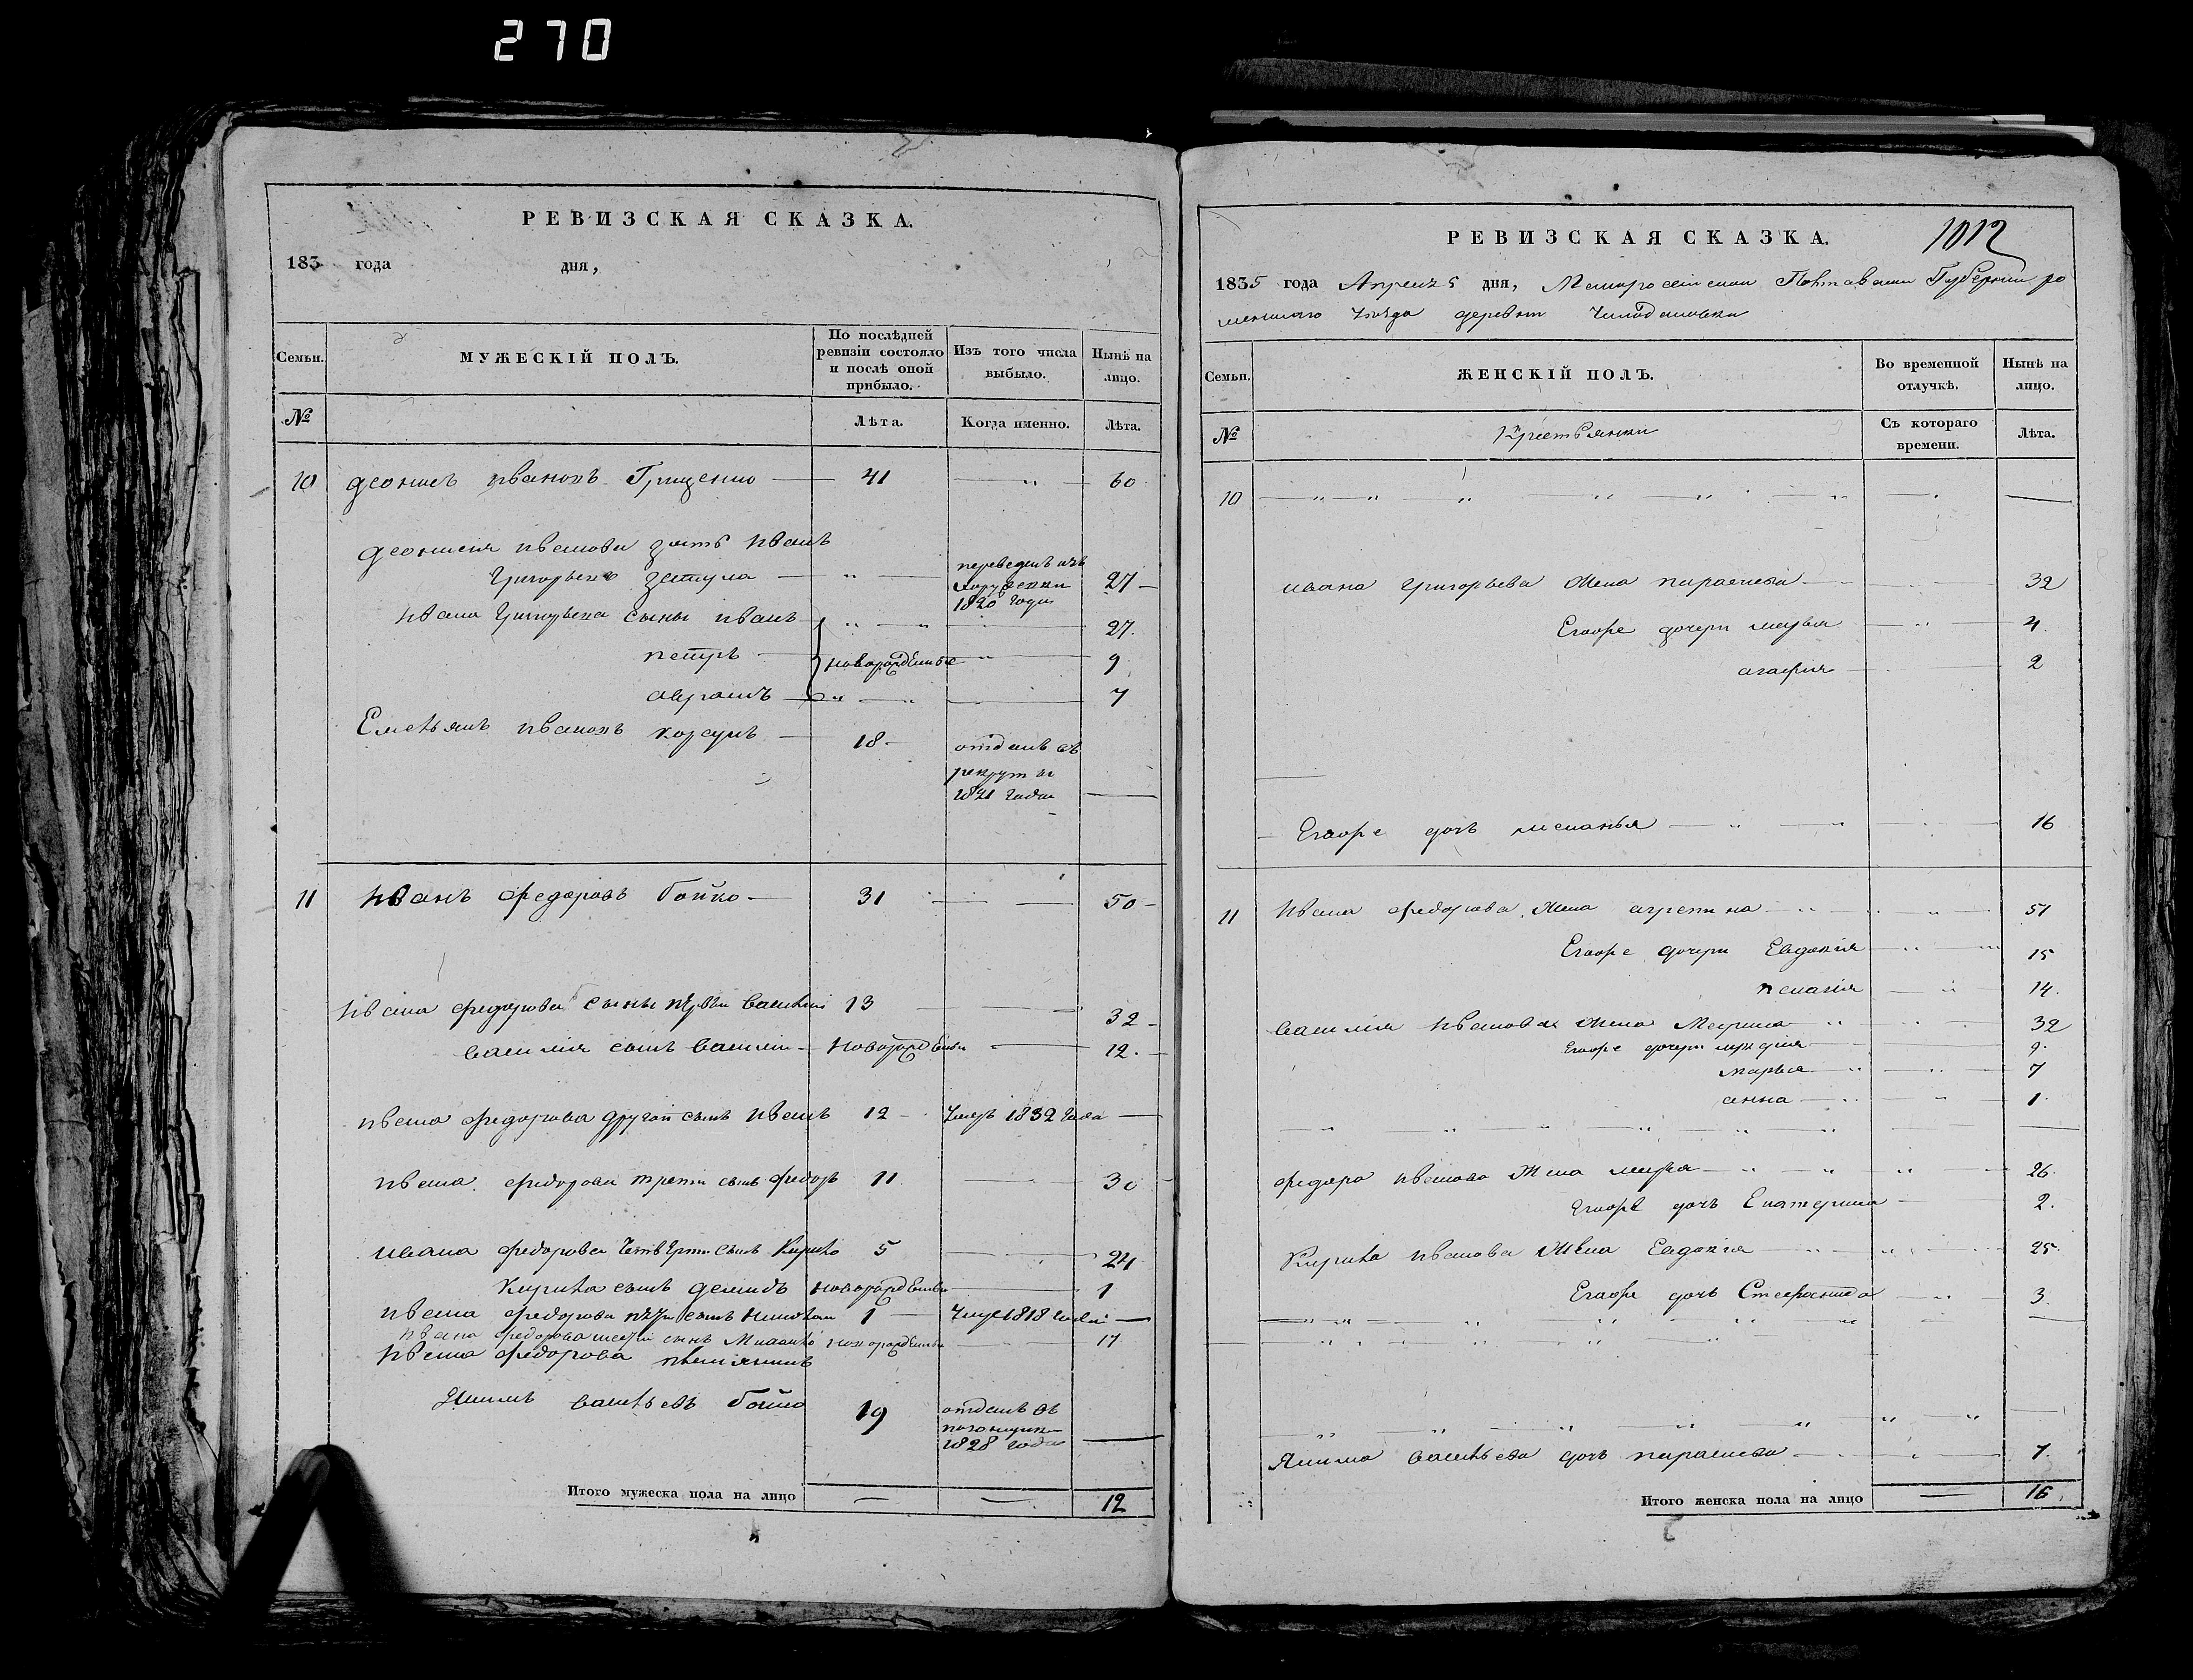 270
РЕВИЗСКАЯ СКАЗКА.
183 года дня,
Семьи. МУЖЕСКІЙ ПОЛЪ. По послѣдней ревизіи состояло и послѣ оной прибыло. Изъ того числа выбыло. Нынѣ на лицо.
№ Лѣта. Когда именно. Лѣта.
10 деонисъ ивановъ Грищенко 41 60
деонисия иванова зять иванъ
Григорьевъ переведенъ изъ 1820 года 27
ивана Григорьева сыны иванъ 27
петръ новорожденные 9
аврамъ 7
Емельянъ ивановъ корсунъ 18 отданъ въ
рекруты
1821 года
11 иванъ федоровъ бойко 31 50
ивана федорова сыны первый василий 13 32
василия сынъ василий новорожденный 12
ивана федорова другой сынъ иванъ 12 умеръ 1832 года
ивана федорова третий сынъ федоръ 11 30
ивана федорова четвертый сынъ Кирило 5 24
Кирила сынъ демидъ новорожденный 1
ивана федорова пятый сынъ 1 умре 1818 года
ивана федорова шестый сынъ новорожденный 17
ивана федорова племянникъ
васильевъ бойко 19 отданъ въ
1828 года
Итого мужеска пола на лицо 12
РЕВИЗСКАЯ СКАЗКА. 1012
1835 года Апреля 5 дня, Малоросийской Полтавской Губернии ро
менского уезда деревни
Семьи. ЖЕНСКІЙ ПОЛЪ. Во временной отлучкѣ. Нынѣ на лицо.
№ Крестьянки Съ котораго времени. Лѣта.
10
ивана Григорьева жена параскева 32
Егоже дочери марья 4
агафия 2
Егоже дочь меланья 16
11 ивана федорова жена агрепина 51
Егоже дочери Евдокия 15
пелагия 14
василия иванова жена Марина 32
Егоже дочери 9
марья 7
анна 1
федора иванова жена 26
Егоже дочь Екатерина 2
Кирила иванова жена Евдокия 25
Егоже дочь Стефанида 3
Якима васильева дочь параскева 7
Итого женска пола на лицо 16